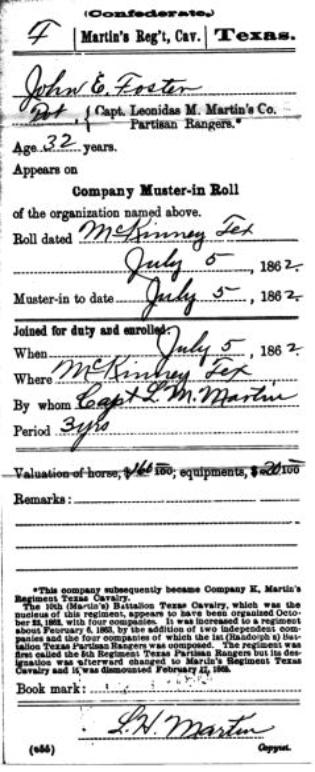 (Confederate.)
F | Martin's Reg't, Cav. | Texas.
John E. Foster
Pvt, { Capt. Leonidas M. Martin's Co.
Partisan Rangers.*
Age 32 years.
Appears on
Company Muster-in Roll
of the organization named above.
Roll dated McKinney Tex
July 5, 1862.
Muster-in to date July 5, 1862.
Joined for duty and enrolled:
When July 5, 1862
Where McKinney Tex
By whom Capt L. M. Martin
Period 3 yrs
Valuation of horse, $160/100; equipments, $20/100
Remarks:
*This company subsequently became Company K, Martin's
Regiment Texas Cavalry.
The 10th (Martin's) Battalion Texas Cavalry, which was the
nucleus of this regiment, appears to have been organized Octo-
ber 23, 1862, with four companies. It was increased to a regiment
about February 6, 1863, by the addition of two independent com-
panies and the four companies of which the 1st (Randolph's) Bat-
talion Texas Partisan Rangers was composed. The regiment was
first called the 5th Regiment Texas Partisan Rangers but its des-
ignation was afterward changed to Martin's Regiment Texas
Cavalry and it was dismounted February 1865.
Book mark:
L. H. Martin
(655) Copyist.